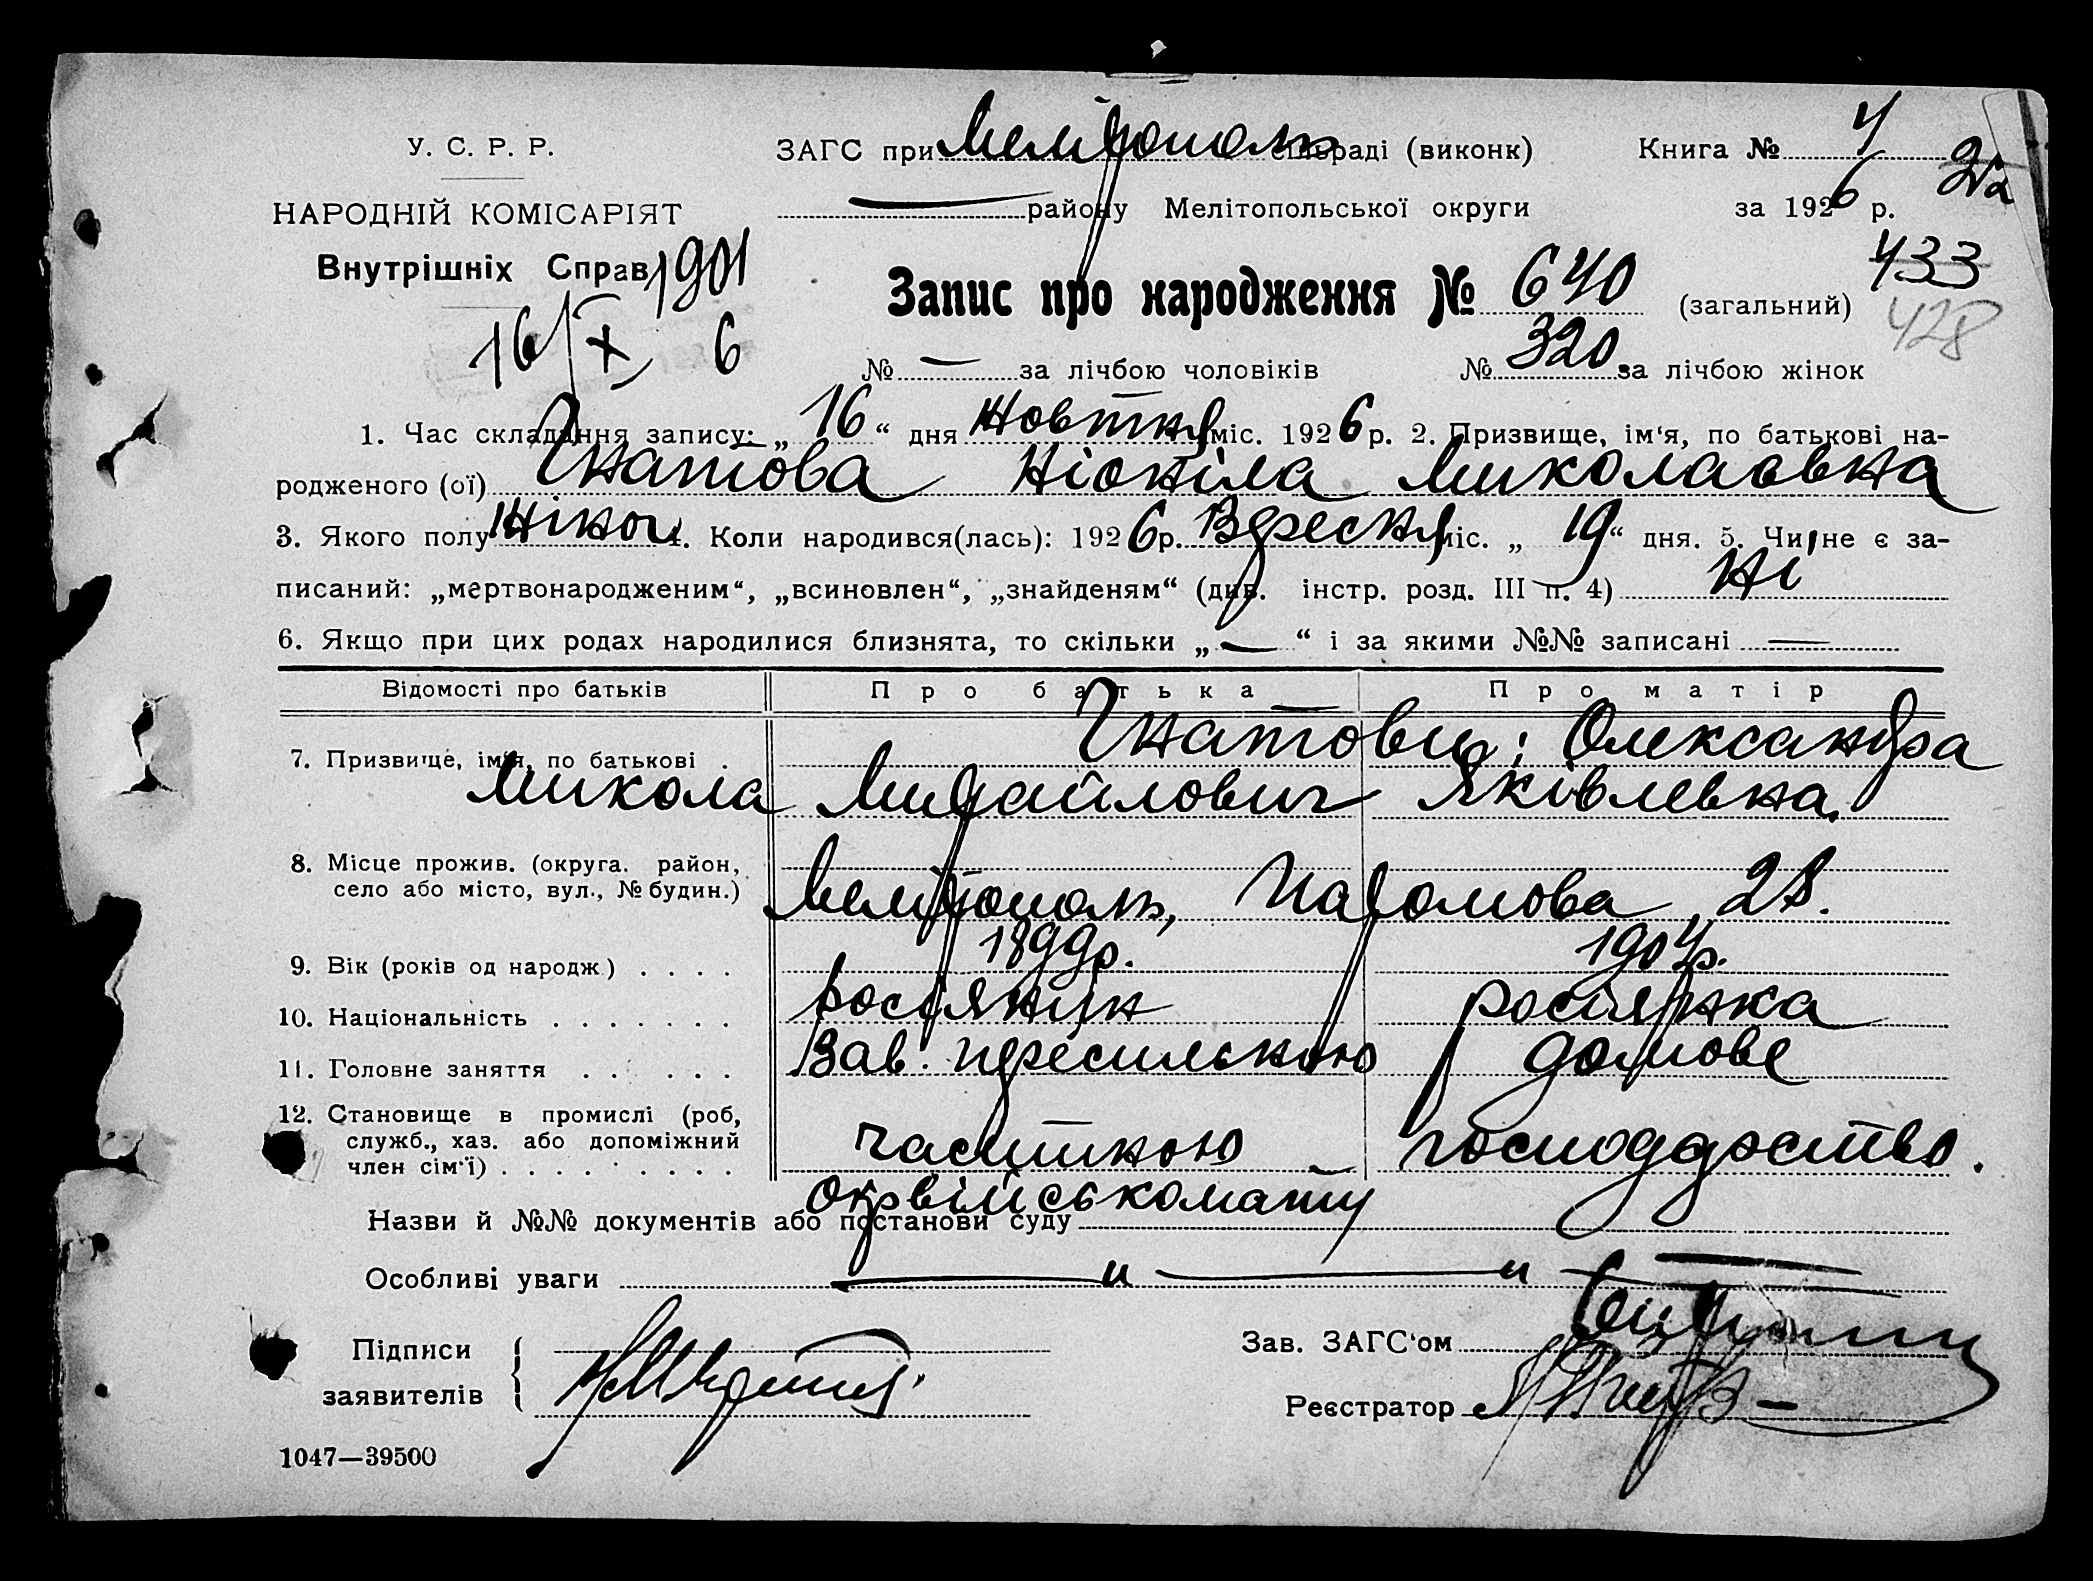 У. С. Р. Р.
НАРОДНІЙ КОМІСАРІЯТ
Внутрішніх Справ
1901
16/X 6
ЗАГС при Мелітополь сільраді (виконк)
Книга № 4
району Мелітопольської округи
за 1926 р.
433
428
Запис про народження № 640 (загальний)
№ — за лічбою чоловіків № 320 за лічбою жінок
1. Час складання запису: „16“ дня Жовтня міс. 1926 р. 2. Призвище, ім‘я, по батькові на-
родженого (ої) Гнатова Ніоніла Миколаовна
3. Якого полу жіноч. 4. Коли народився(лась): 1926 р. Вересня міс. „19“ дня. 5. Чи не є за-
писаний: „мертвонародженим“, „всиновлен“, „знайденям“ (див. інстр. розд. III п. 4) ні
6. Якщо при цих родах народилися близнята, то скільки „—“ і за якими №№ записані —
Відомості про батьків Про батька Про матір
7. Призвище, ім‘я, по батькові . Гнатови: Олександра
Микола Михайлович Яківлевна.
8. Місце прожив. (округа. район,
село або місто, вул., № будин.) Мелітополь, 28.
9. Вік (років од народж.) . . . . 1899р. 1904р.
10. Національність . . . . . . . росіянин росіянка
11. Головне заняття . . . . . . Зав. пересильною домове
12. Становище в промислі (роб,
служб., хаз. або допоміжний
член сім‘ї) . . . . . . . . . частиною господарство.
окрвійськомату
Назви й №№ документів або постанови суду
Особливі уваги — „ — „ —
Підписи
заявителів
Зав. ЗАГС‘ом
Реєстратор
1047—39500